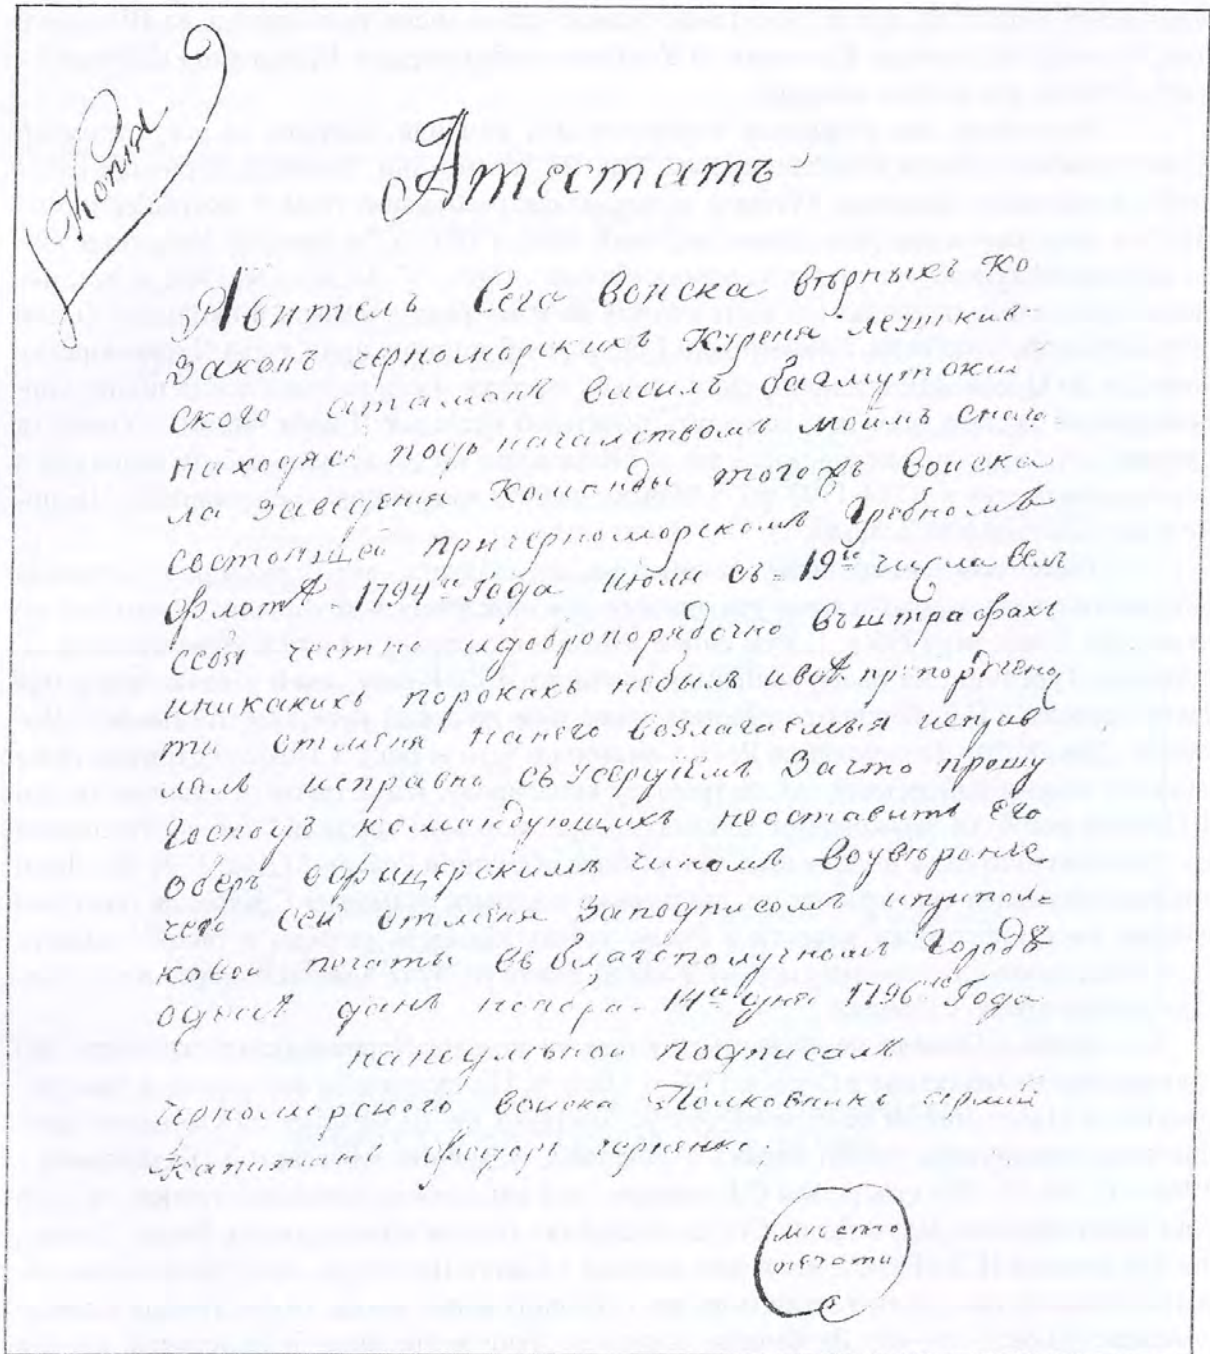 Копия
Аттестатъ
Явитель Сего воиска вѣрныхъ Ко
Заковъ черноморскихъ Куреня леушков
ского атаманъ василь бахмутскии
находясь подъ началствомъ моимъ снача
ла заведения Команды тогожъ воиска
состоящей причерноморскомъ Гребномъ
флотѣ - 1794го Года июня съ - 19го числа велъ
себя честно идобропорядочно въштрафахъ
иникакихъ порокахъ небылъ ивсѣ препорученно
ти отменя нанего возлагаемыя исправ
лялъ исправно съусердиемъ Зачто прошу
Господъ командующихъ неоставить Его
оберъ офицерскимъ чиномъ воувѣрение
чего сей отменя заподписомъ иприпол=
ковой печаты въблагополучномъ Городѣ
одессѣ данъ ноября - 14го дня 1796го Года
наподлѣнной подписалъ
черноморского воиска Полковникъ армии
Капитанъ Федоръ черненко.
место
печати